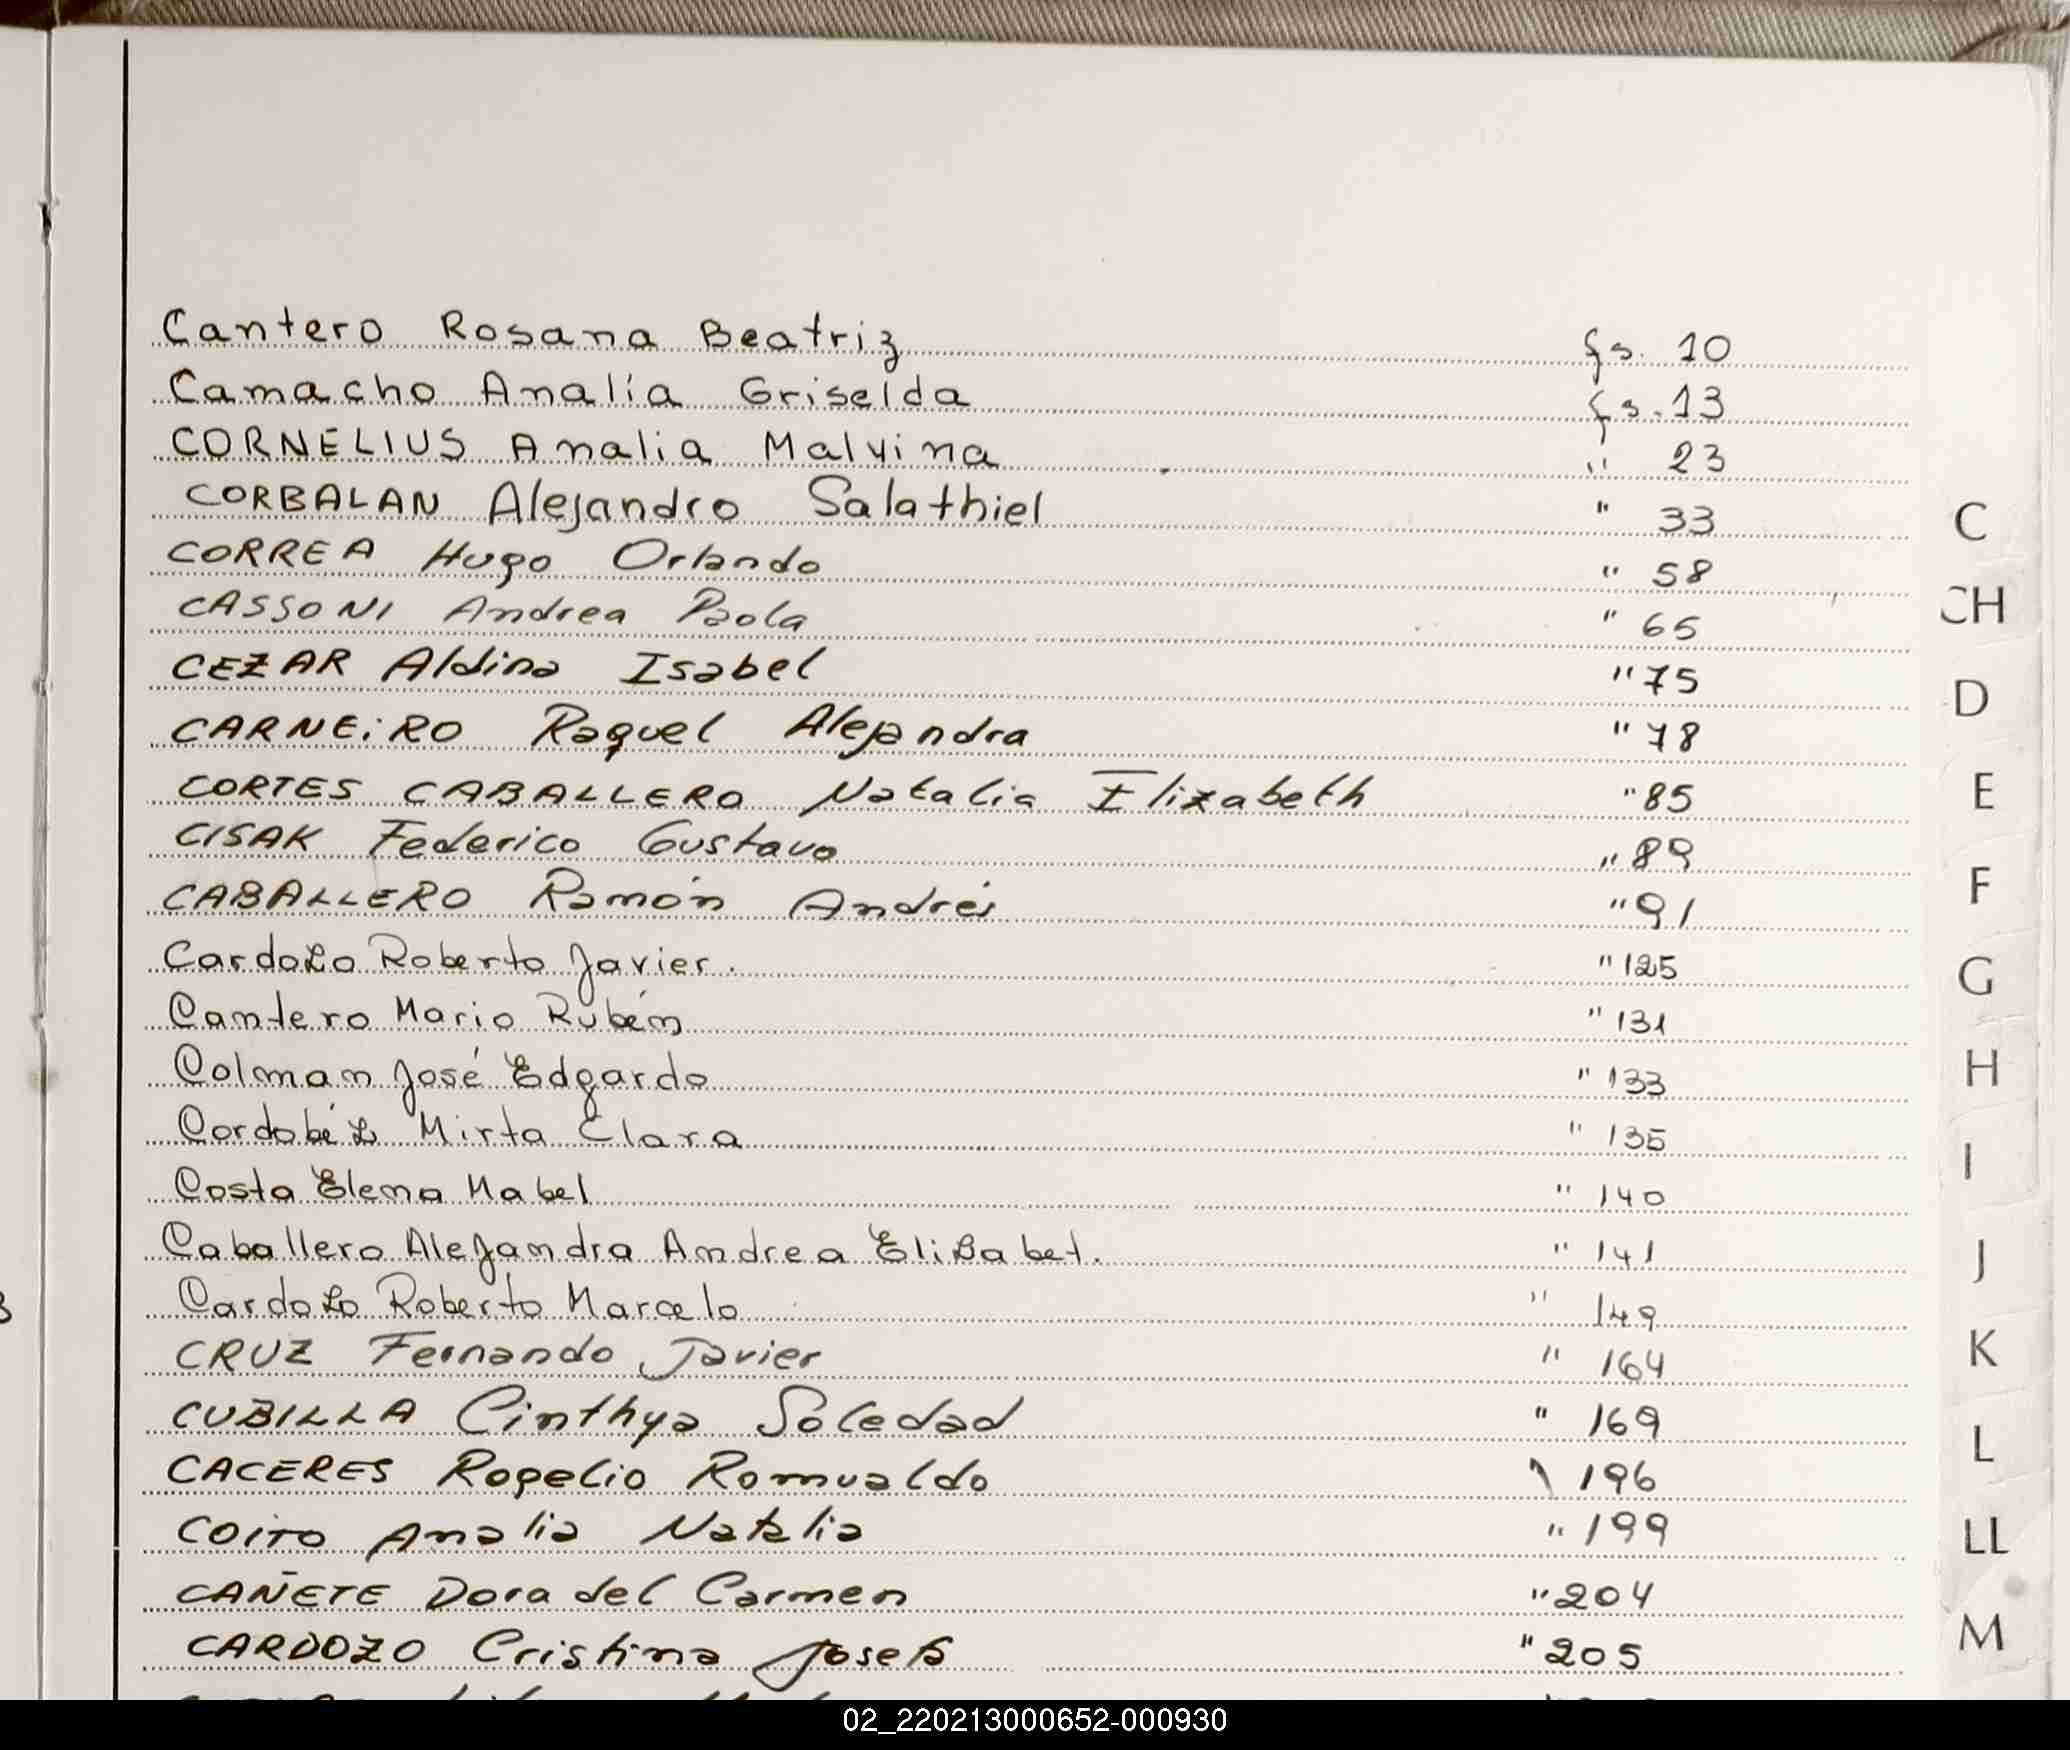 Cantero Rosana Beatriz fs. 10
Camacho Analía Griselda fs. 13
CORNELIUS Analia Malvina " 23
CORBALAN Alejandro Salathiel " 33
CORREA Hugo Orlando " 58
CASSONI Andrea Paola " 65
CEZAR Aldina Isabel " 75
CARNEiRO Raquel Alejandra " 78
CORTES CABALLERO Natalia Elizabeth " 85
CISAK Federico Gustavo " 89
CABALLERO Ramón Andrés " 91
Cardozo Roberto Javier. " 125
Cantero Mario Rubén " 131
Colman José Edgardo " 133
Cordobéz Mirta Clara " 135
Costa Elena Mabel " 140
Caballero Alejandra Andrea Elisabet. " 141
Cardozo Roberto Marcelo " 149
CRUZ Fernando Javier " 164
CUBILLA Cinthya Soledad " 169
CACERES Rogelio Romualdo " 196
COITO Analia Natalia " 199
CAÑETE Dora del Carmen " 204
CARDOZO Cristina Josefa " 205
C
CH
D
E
F
G
H
I
J
K
L
LL
M
02_220213000652-000930